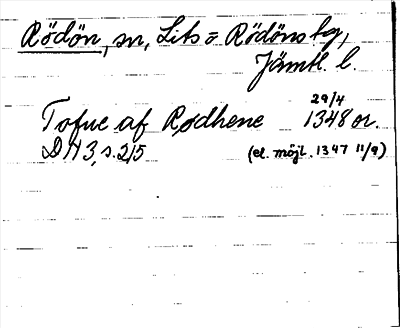 Rödön, sn, Lits o Rödöns tg,
Jämtl. l.
29/4
Tofue af Rødhene 1348 or.
DN 3, s. 215 (el. möjl. 1347 11/9)